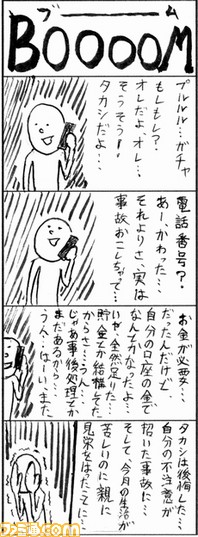 ブーム
BOOOOM
プルルル…ガチャ
もしもし？
オレだよ、オレ…
そうそう！！
タカシだよ…
電話番号？
あー、かわった…
それよりさ、実は
事故おこしちゃって…
お金が必要…
だったんだけど、
自分の口座の金で
なんとかなったよ…
いや、全然足りた…
貯金とか結構してた
からさ…うん…
じゃあ事後処理とか
まだあるから…
うん…はーい、また
タカシは後悔した…
自分の不注意が
招いた事故に…
そして、今月の生活が
苦しいのに親に
見栄をはったことに…
ファミ通.com